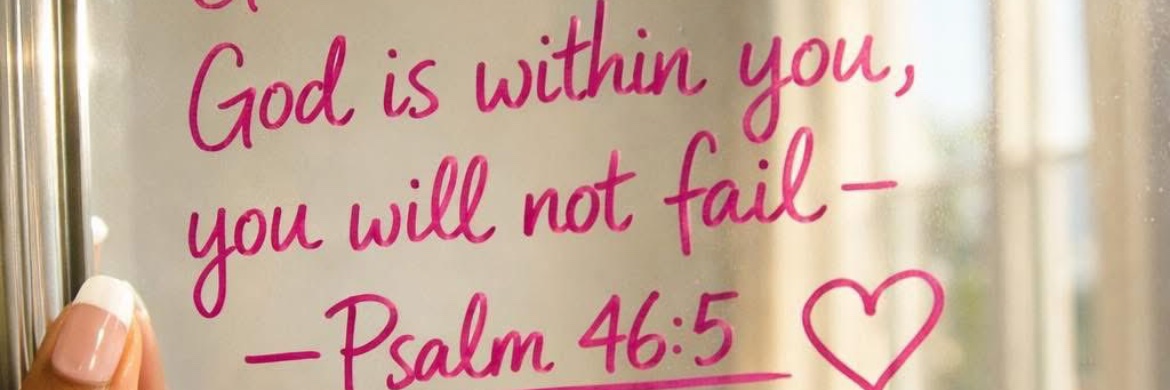 God is within you,
you will not fail –
– Psalm 46:5